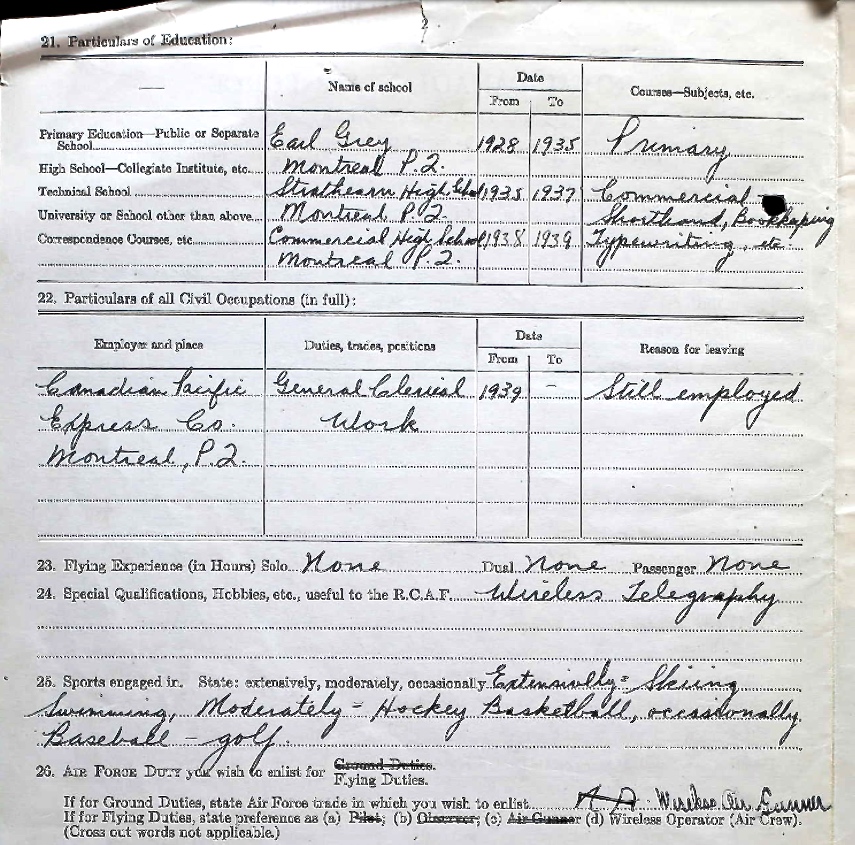 2
21. Particulars of Education:
Name of school Date Courses—Subjects, etc.
From To
Primary Education—Public or Separate School Earl Grey 1928 1935 Primary
High School—Collegiate Institute, etc. Montreal P.Q.
Technical School Strathearn High School 1935 1937 Commercial
University or School other than above Montreal P.Q. Shorthand, Bookkeeping
Correspondence Courses, etc. Commercial High School 1938 1939 Typewriting, etc.
Montreal P.Q.
22. Particulars of all Civil Occupations (in full):
Employer and place Duties, trades, positions Date Reason for leaving
From To
Canadian Pacific General Clerical 1939 – Still employed
Express Co. Work
Montreal, P.Q.
23. Flying Experience (in Hours) Solo None Dual None Passenger None
24. Special Qualifications, Hobbies, etc., useful to the R.C.A.F. Wireless Telegraphy
25. Sports engaged in. State: extensively, moderately, occasionally Extensively = Skiing
Swimming, Moderately = Hockey Basketball, occasionally
Baseball – golf.
26. AIR FORCE DUTY you wish to enlist for Ground Duties.
Flying Duties.
If for Ground Duties, state Air Force trade in which you wish to enlist Wireless Air Gunner
If for Flying Duties, state preference as (a) Pilot; (b) Observer; (c) Air Gunner (d) Wireless Operator (Air Crew).
(Cross out words not applicable.)